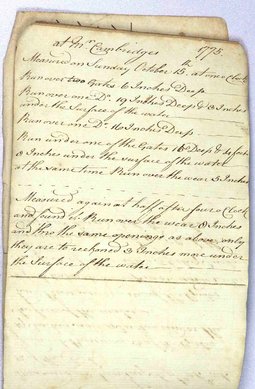 at Mr. Cambridges 1775
Measured on Sunday October 15th, at one o Clock
Run over two Gates 6 Inches Deep
Run over one Do. 19 Inches Deep & 3 Inches
under the Surface of the water
Run over one Do. 16 Inches Deep
Run under one of the Gates 16 Deep & 4 foot
8 Inches under the surface of the water
at the same time Run over the wear 5 Inches
Measured again at half after four o Clock
and found it Run over the wear 8 Inches
and thro the same openings as above only
they are to reckoned 3 Inches more under
the Surface of the water